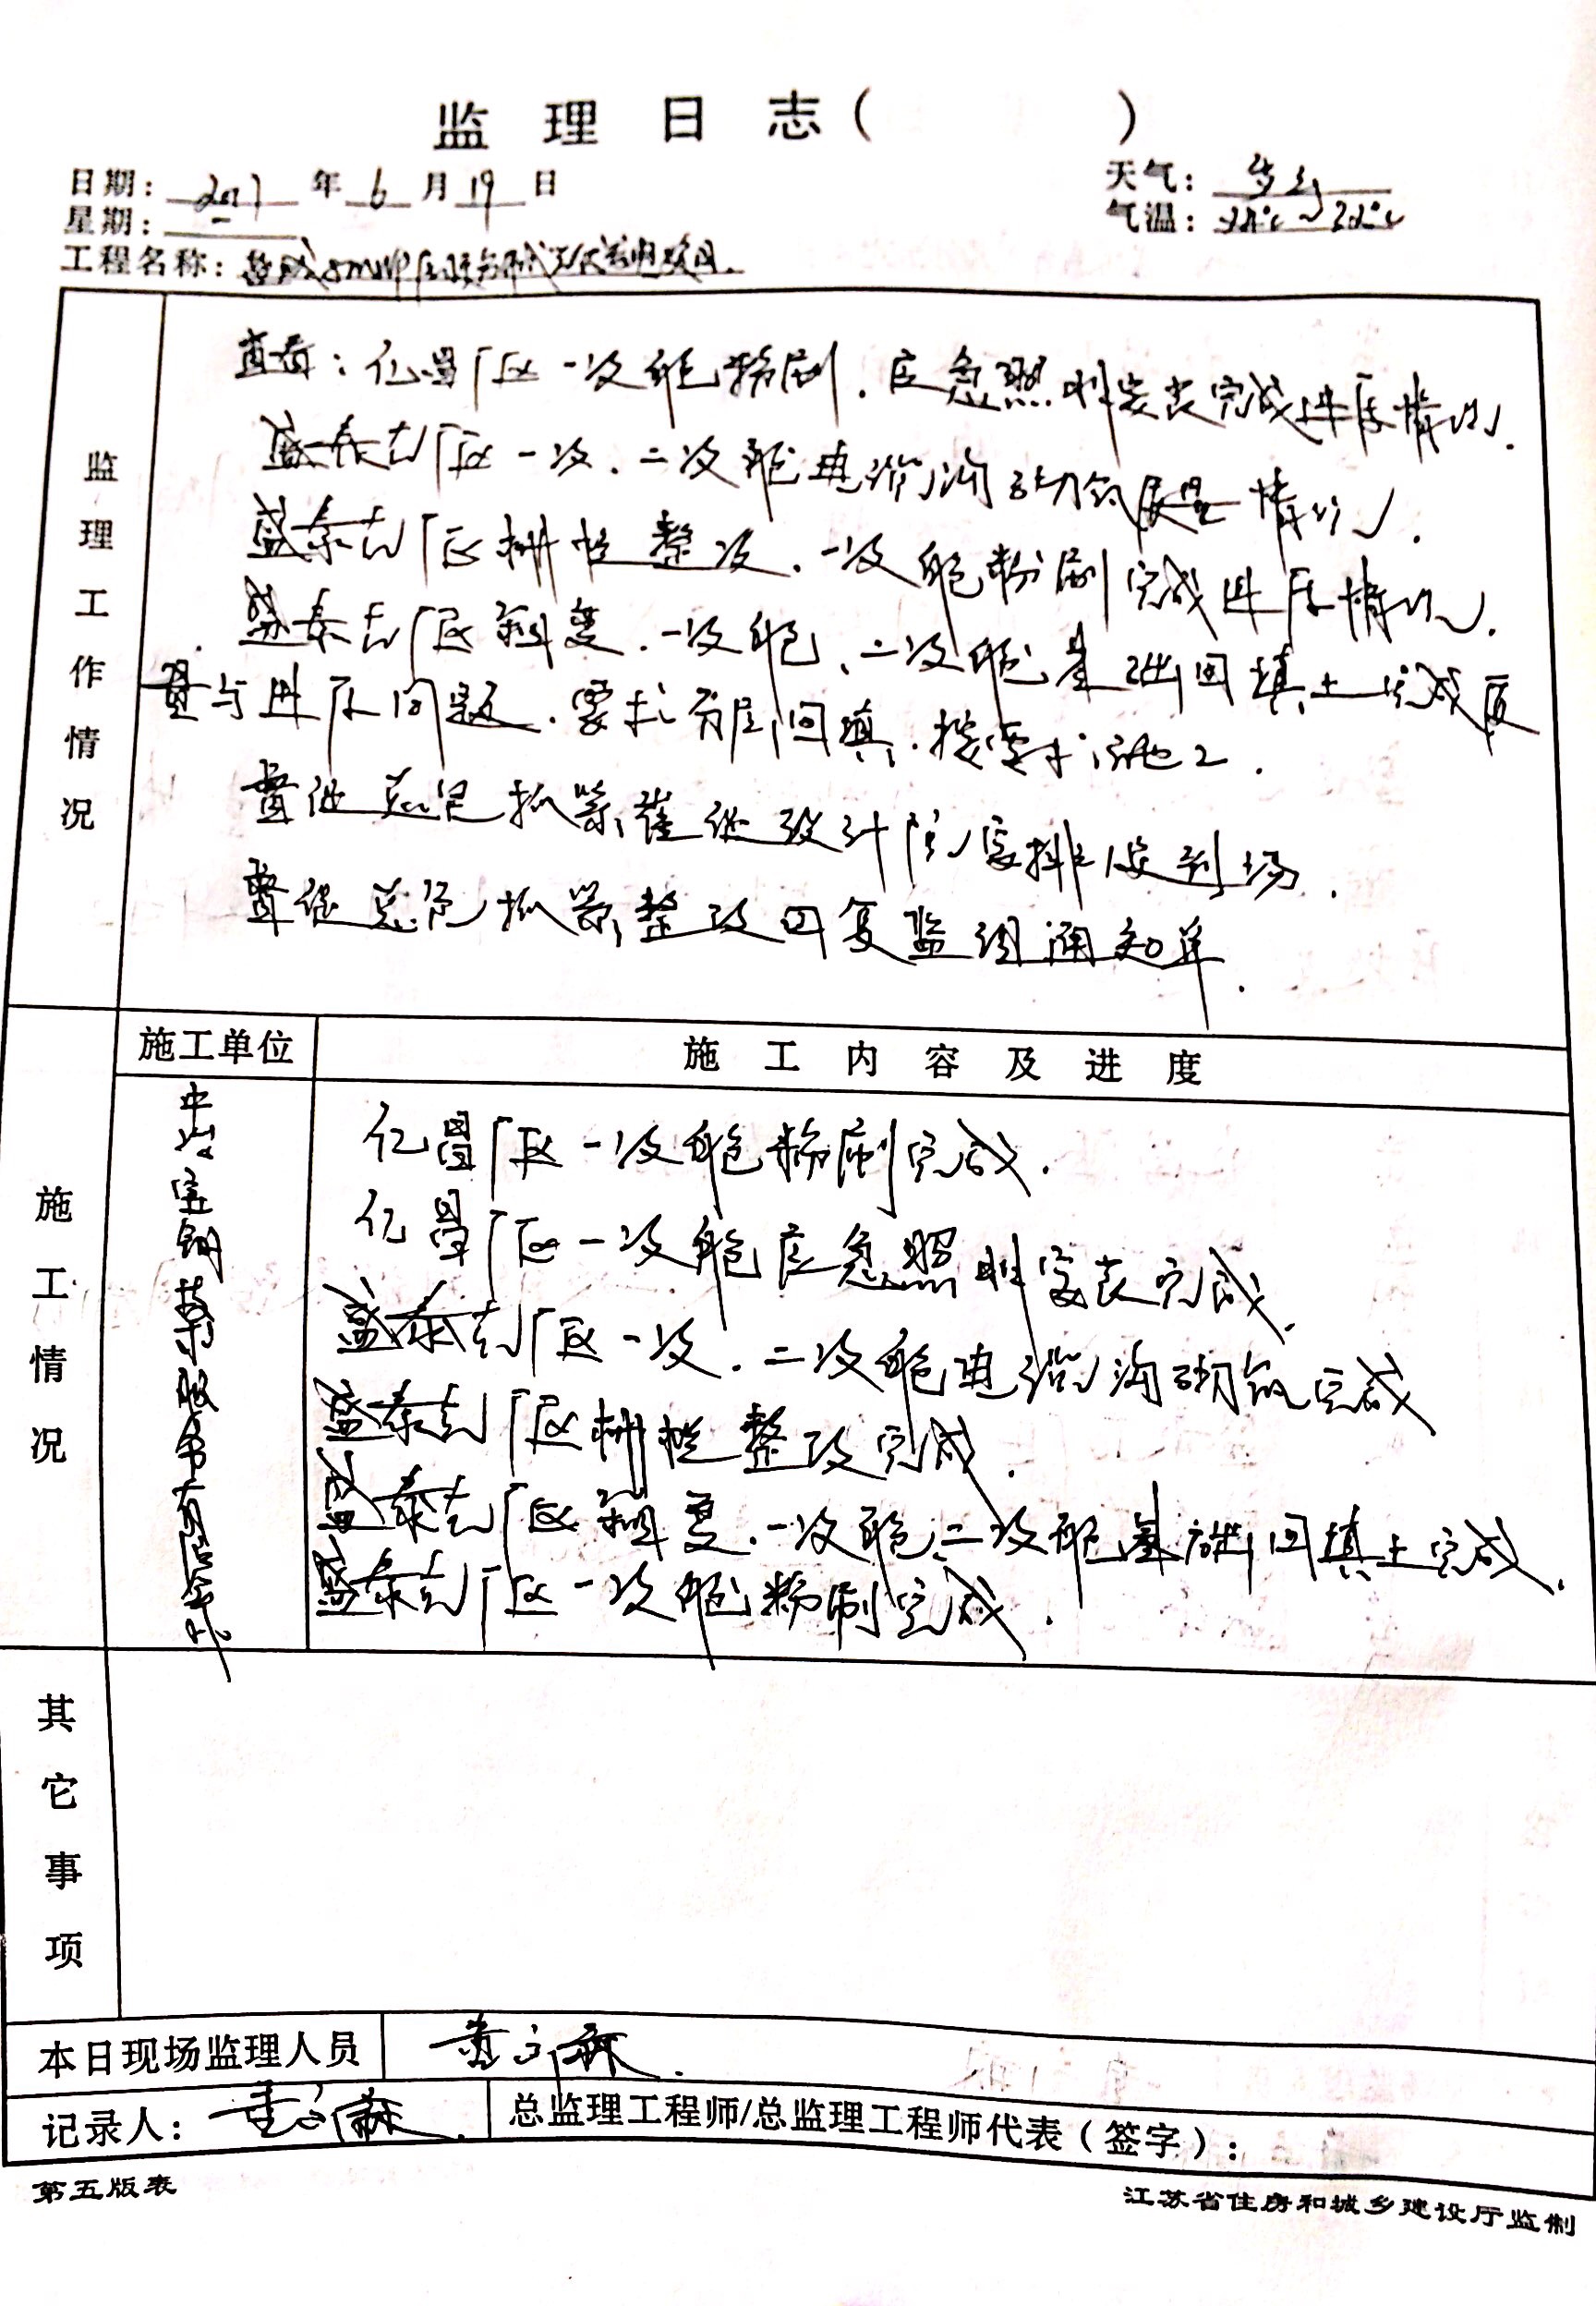 监理日志（ ）
日期：2017年6月19日
天气：多云
星期：一
气温：22℃～32℃
工程名称：盐城
监理工作情况
查看：亿昌厂区一次舱粉刷．应急照明安装完成进度情况．
盛泰克厂区一次．二次舱电缆沟砌筑质量情况．
盛泰克厂区栅栏整改．一次舱粉刷完成进度情况．
盛泰克厂区箱变．一次舱、二次舱基础回填土完成质
量与进度问题．要求分层回填．按要求施工．
督促总包抓紧催促设计院安排人员到场．
督促总包抓紧整改回复监理通知单．
施工情况
施工单位
施工内容及进度
中冶宝钢技术服务有限公司
亿昌厂区一次舱粉刷完成．
亿昌厂区一次舱应急照明安装完成．
盛泰克厂区一次．二次舱电缆沟砌筑完成
盛泰克厂区栅栏整改完成．
盛泰克厂区箱变．一次舱、二次舱基础回填土完成．
盛泰克厂区一次舱粉刷完成．
其它事项
本日现场监理人员
记录人：
总监理工程师/总监理工程师代表（签字）：
第五版表
江苏省住房和城乡建设厅监制